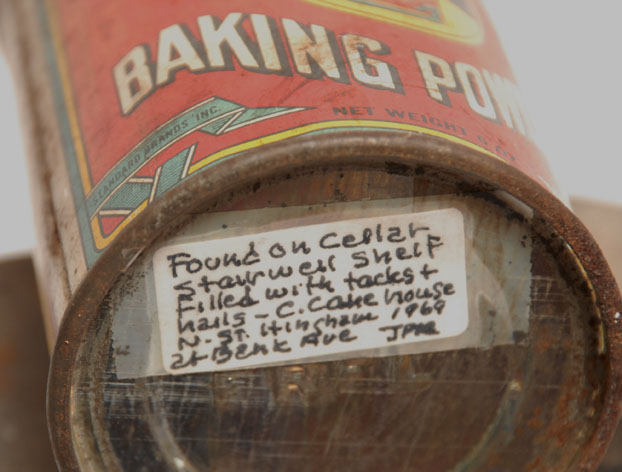 BAKING POW
NET WEIGHT 6 OZ
STANDARD BRANDS INC.
Found on Cellar
stairwell shelf
filled with tacks +
nails - C. Cane house
N. ST. Hingham 1969
at Bank Ave JPR